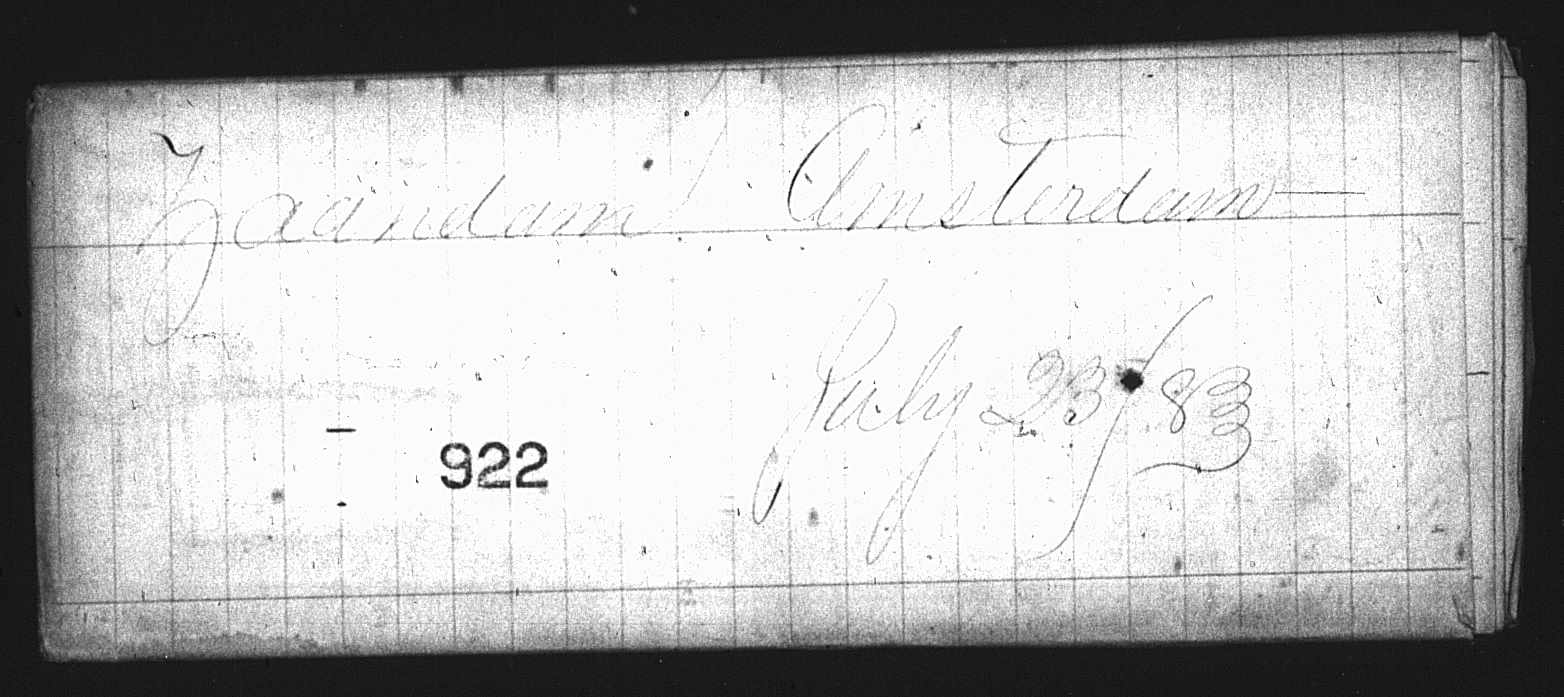 Zaandam Amsterdam
July 23/83
922